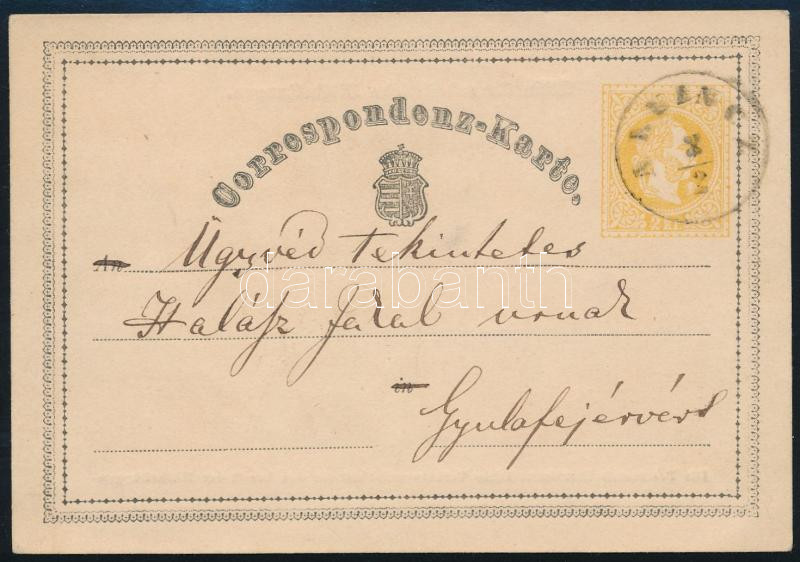 Correspondenz-Karte.
An Ügyvéd Tekintetes
Halász
urnak
in
Gyulafejérvárt
darabanth